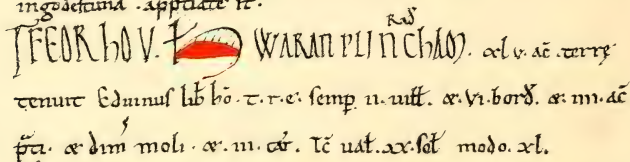 ingodestuna . app̄tiate st̄.
Rad̄
FEORhOV. WARANPLINChAM̄. xl v. ac̄. terrę
tenuit Eduinus lib̄ hō. t. r. e. semp̄ . ii. uill̄. &. vi. bord̄. &. iiii. ac̄
p̄ti. & dim̄ moli. &. iii. car̄. Tc̄ ual̄. xx. sol̄ modo. xl.